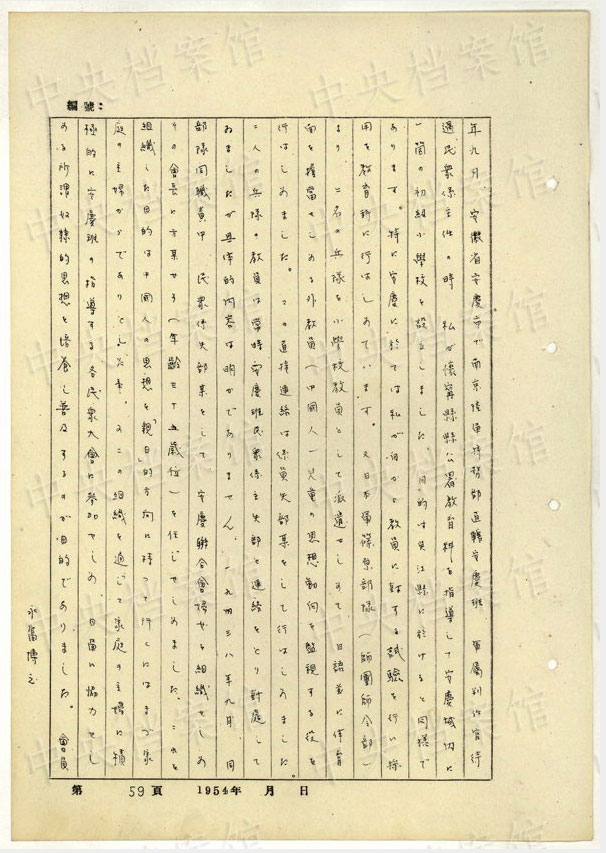 編號：
年九月、安徽省安慶市で南京陸軍特務部直轄安慶班 軍屬判任官待
遇民衆係主任の時 私が懐寧縣縣公署教育科を指導して安慶城内に
一箇の初級小學校を設立しました 目的は呉江縣に於けると同様で
あります。特に安慶に於ては私が自から教員に対する試驗を行い採
用を教育科に行はしめています。又日本軍篠原部隊（師團師令部）
より 二名の兵隊を小學校教員として派遣せしめて 日語並に体育
面を擔當せしめる外教員（中國人）児童の思想動向を監視する役を
行はしめました。この直接連絡は係員矢部某をして行はしめました。
二人の兵隊の教員は常時安慶班民衆係主矢部と連絡をとり對處して
ゐましたが具体的内容は明かでありません。一九四三八年九月、同
部隊同職責中 民衆係矢部某をして 安慶聯合會婦女を組織せしめ
その會長に方某女子（年齢三十五歳位）を任じせしめました。これを
組織した目的は中國人の思想を「親日」的方向に持って行くにはまづ家
庭の主婦からでありとした事、よこの組織を通じて家庭の主婦に積
極的に安慶班の指導する各民衆大會に参加せしめ 日軍に協力せし
める所謂奴隷的思想を培養し普及するのが目的でありました。 會員
永富博之
第 59頁 1954年 月 日
中央档案馆